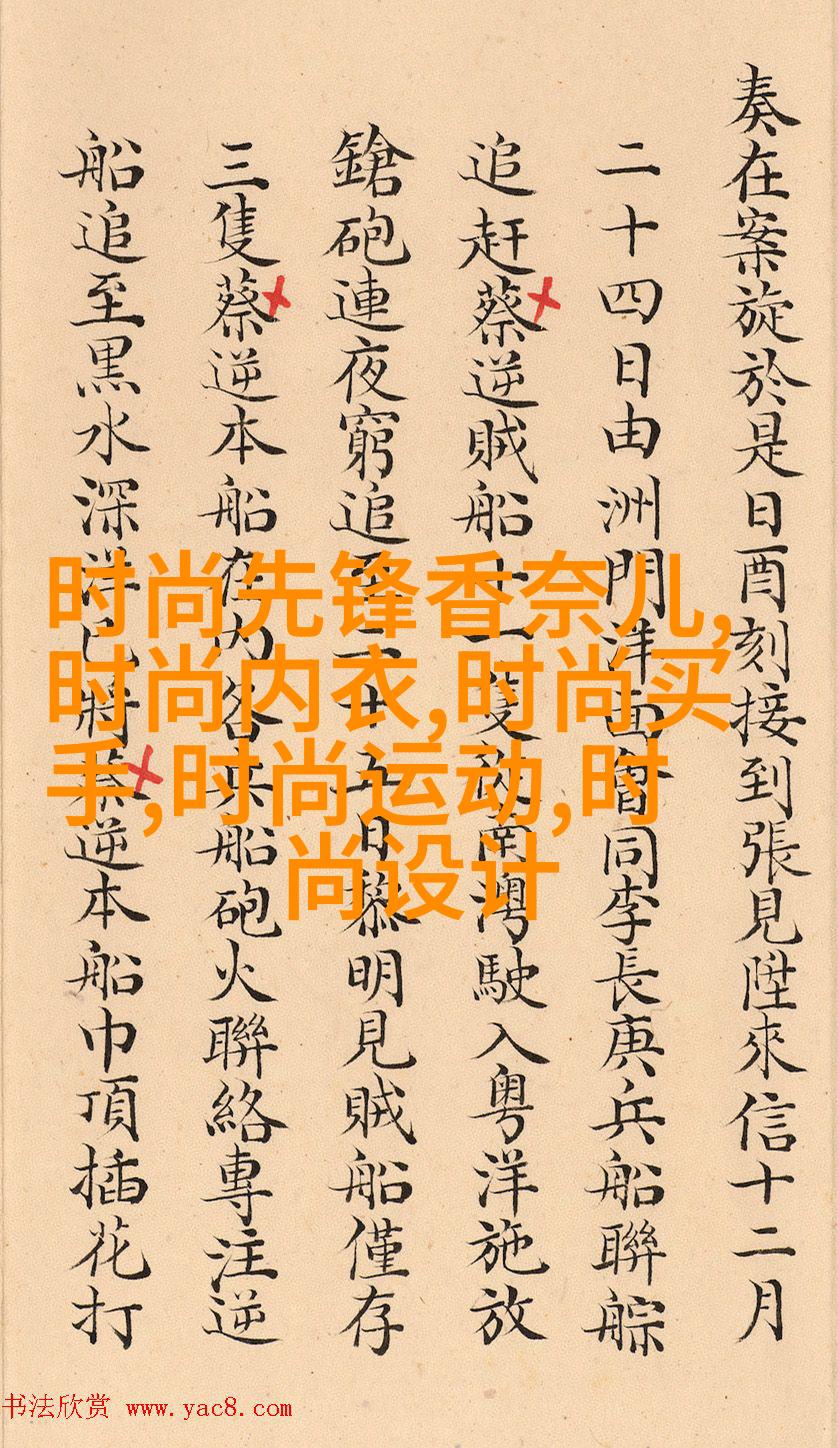 奏在案旋於是日酉刻接到張見陞來信十二月
二十四日由洲門洋面會同李長庚兵船聯䑸
追赶蔡逆賊船十一隻南澚駛入粤洋施放
鎗砲連夜窮追至二十五日黎明見賊船僅存
三隻蔡逆本船在内各兵船砲火聯絡專注逆
船追至黒水深洋已將蔡逆本船巾頂插花打
时尚先锋香奈儿,
时尚内衣,时尚买
手,时尚运动,时
尚设计
书法欣赏 www.yac8.com